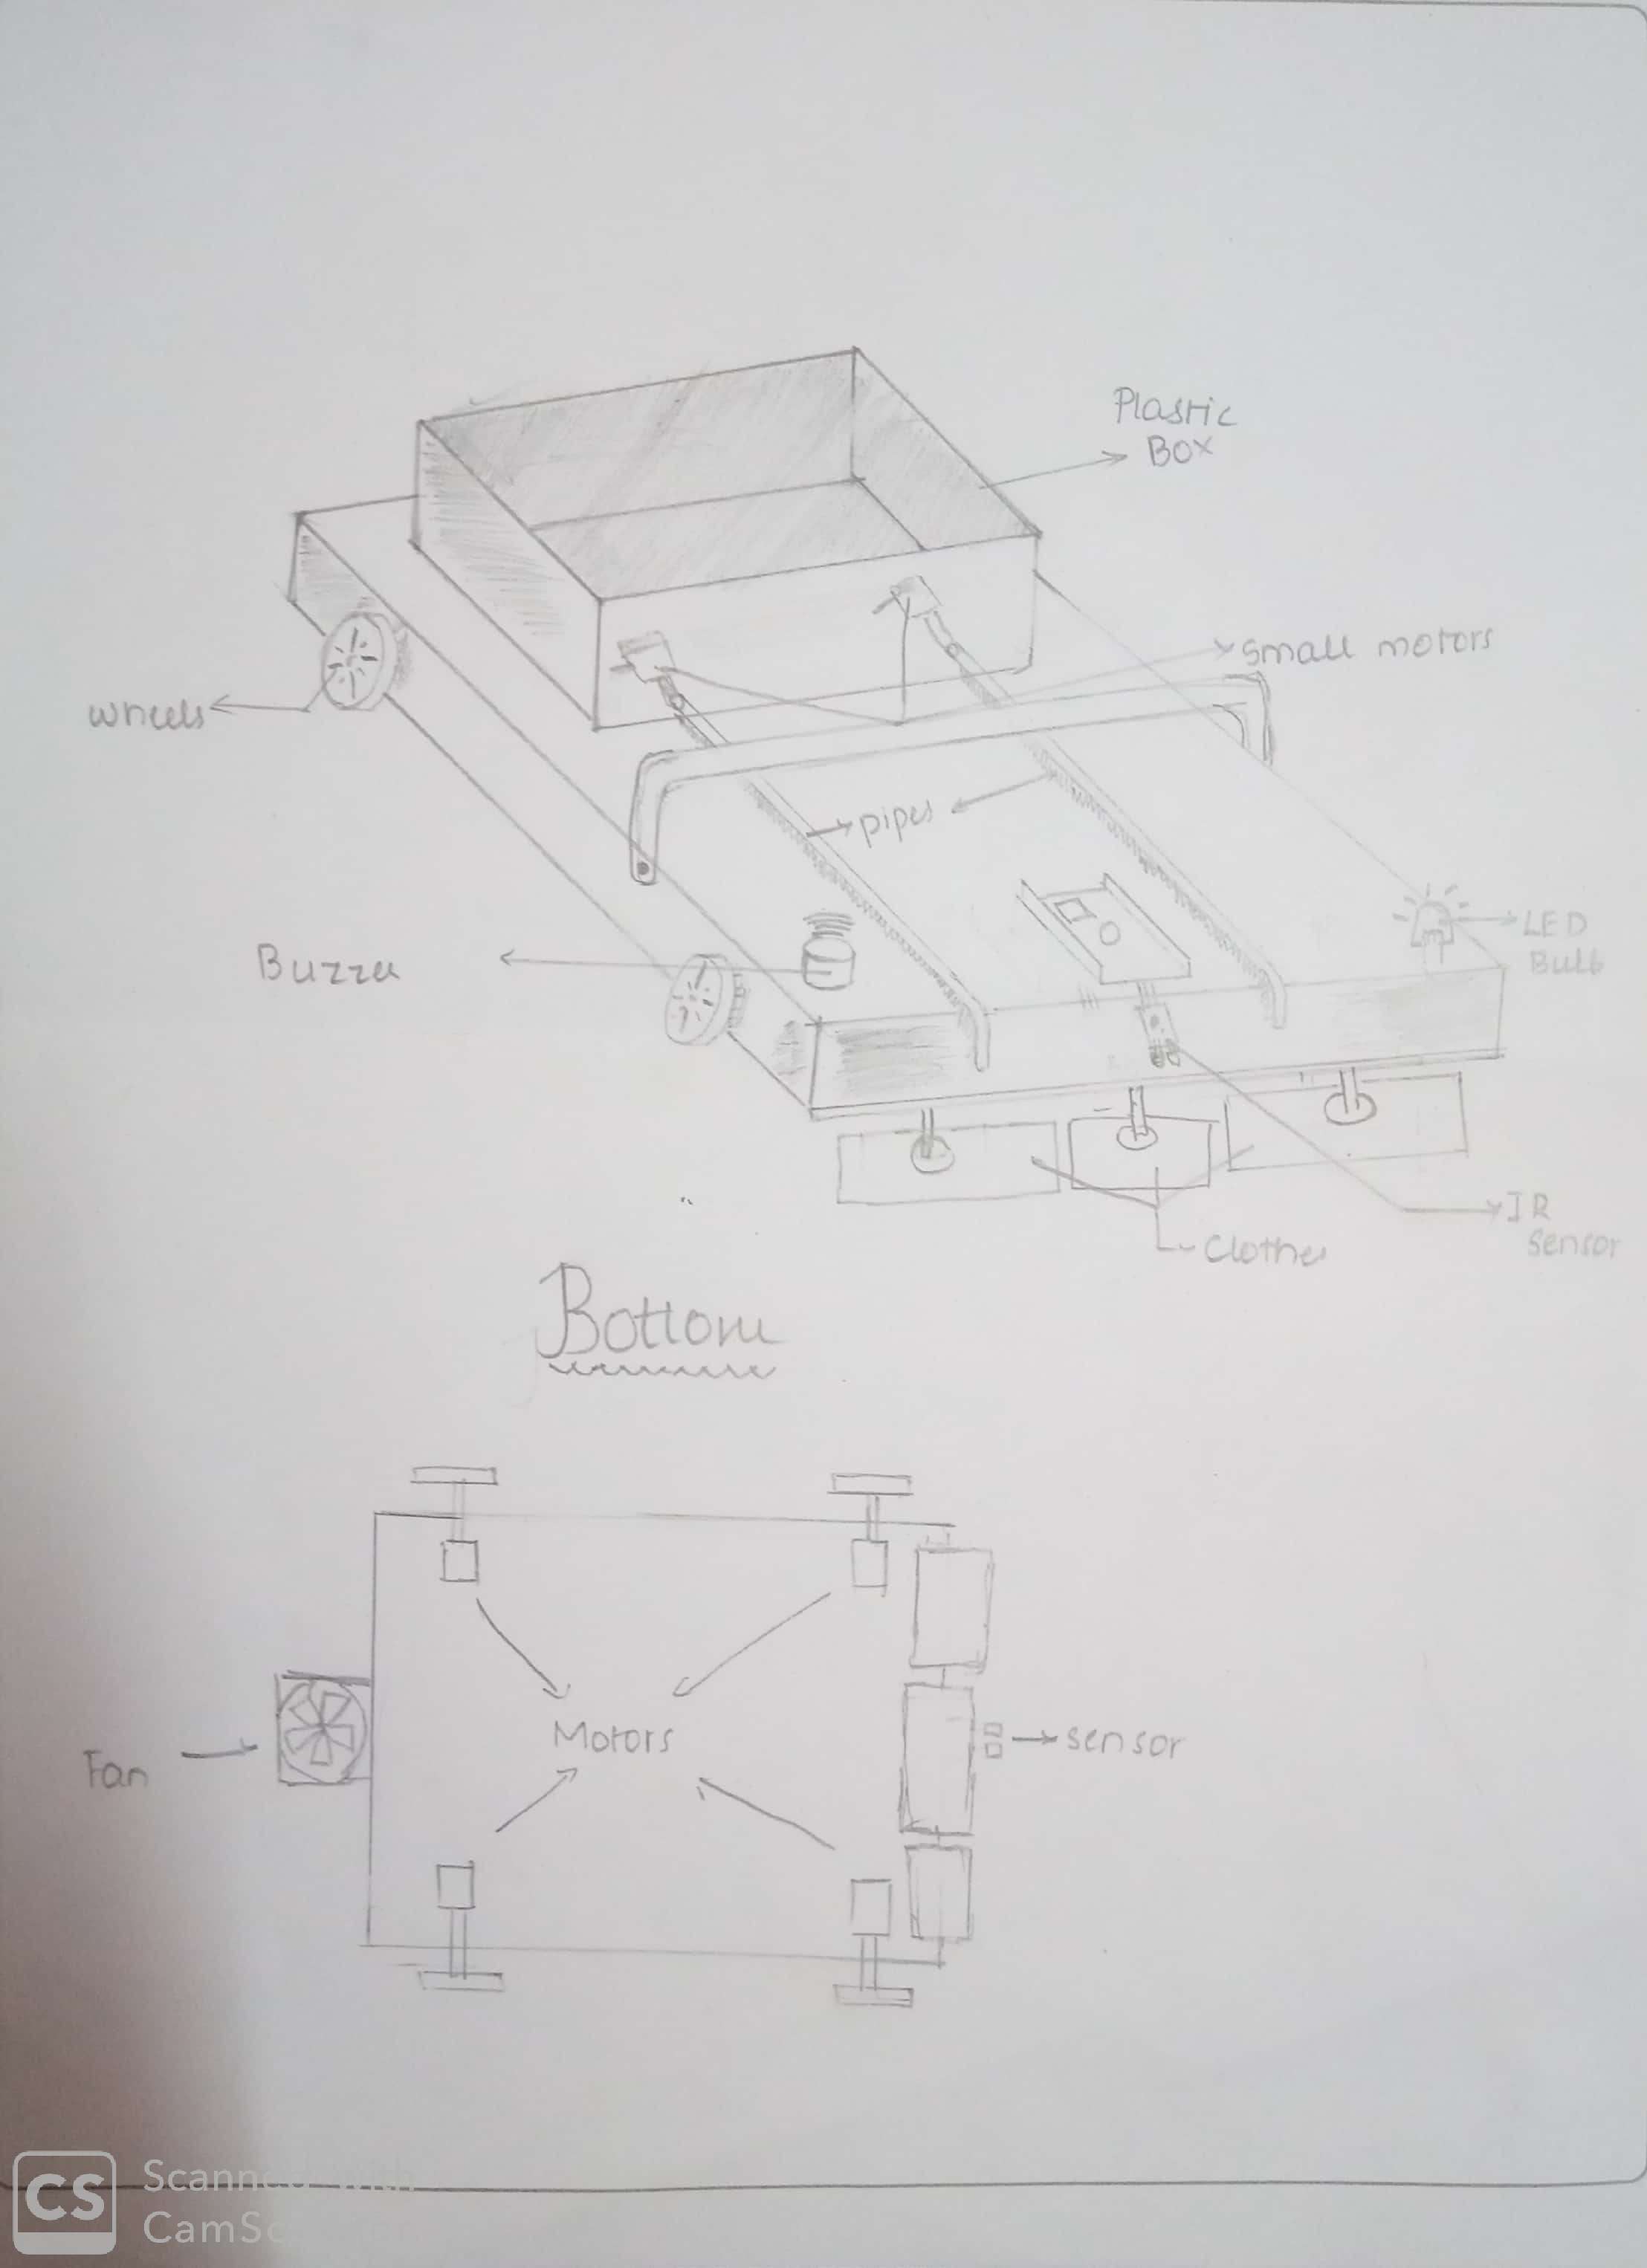 Plastic
Box
small motors
wheels
pipes
LED
Bulb
Buzza
IR
Sensor
Clothes
Bottom
Motors
sensor
Fan
CS
Scanned with
CamSc